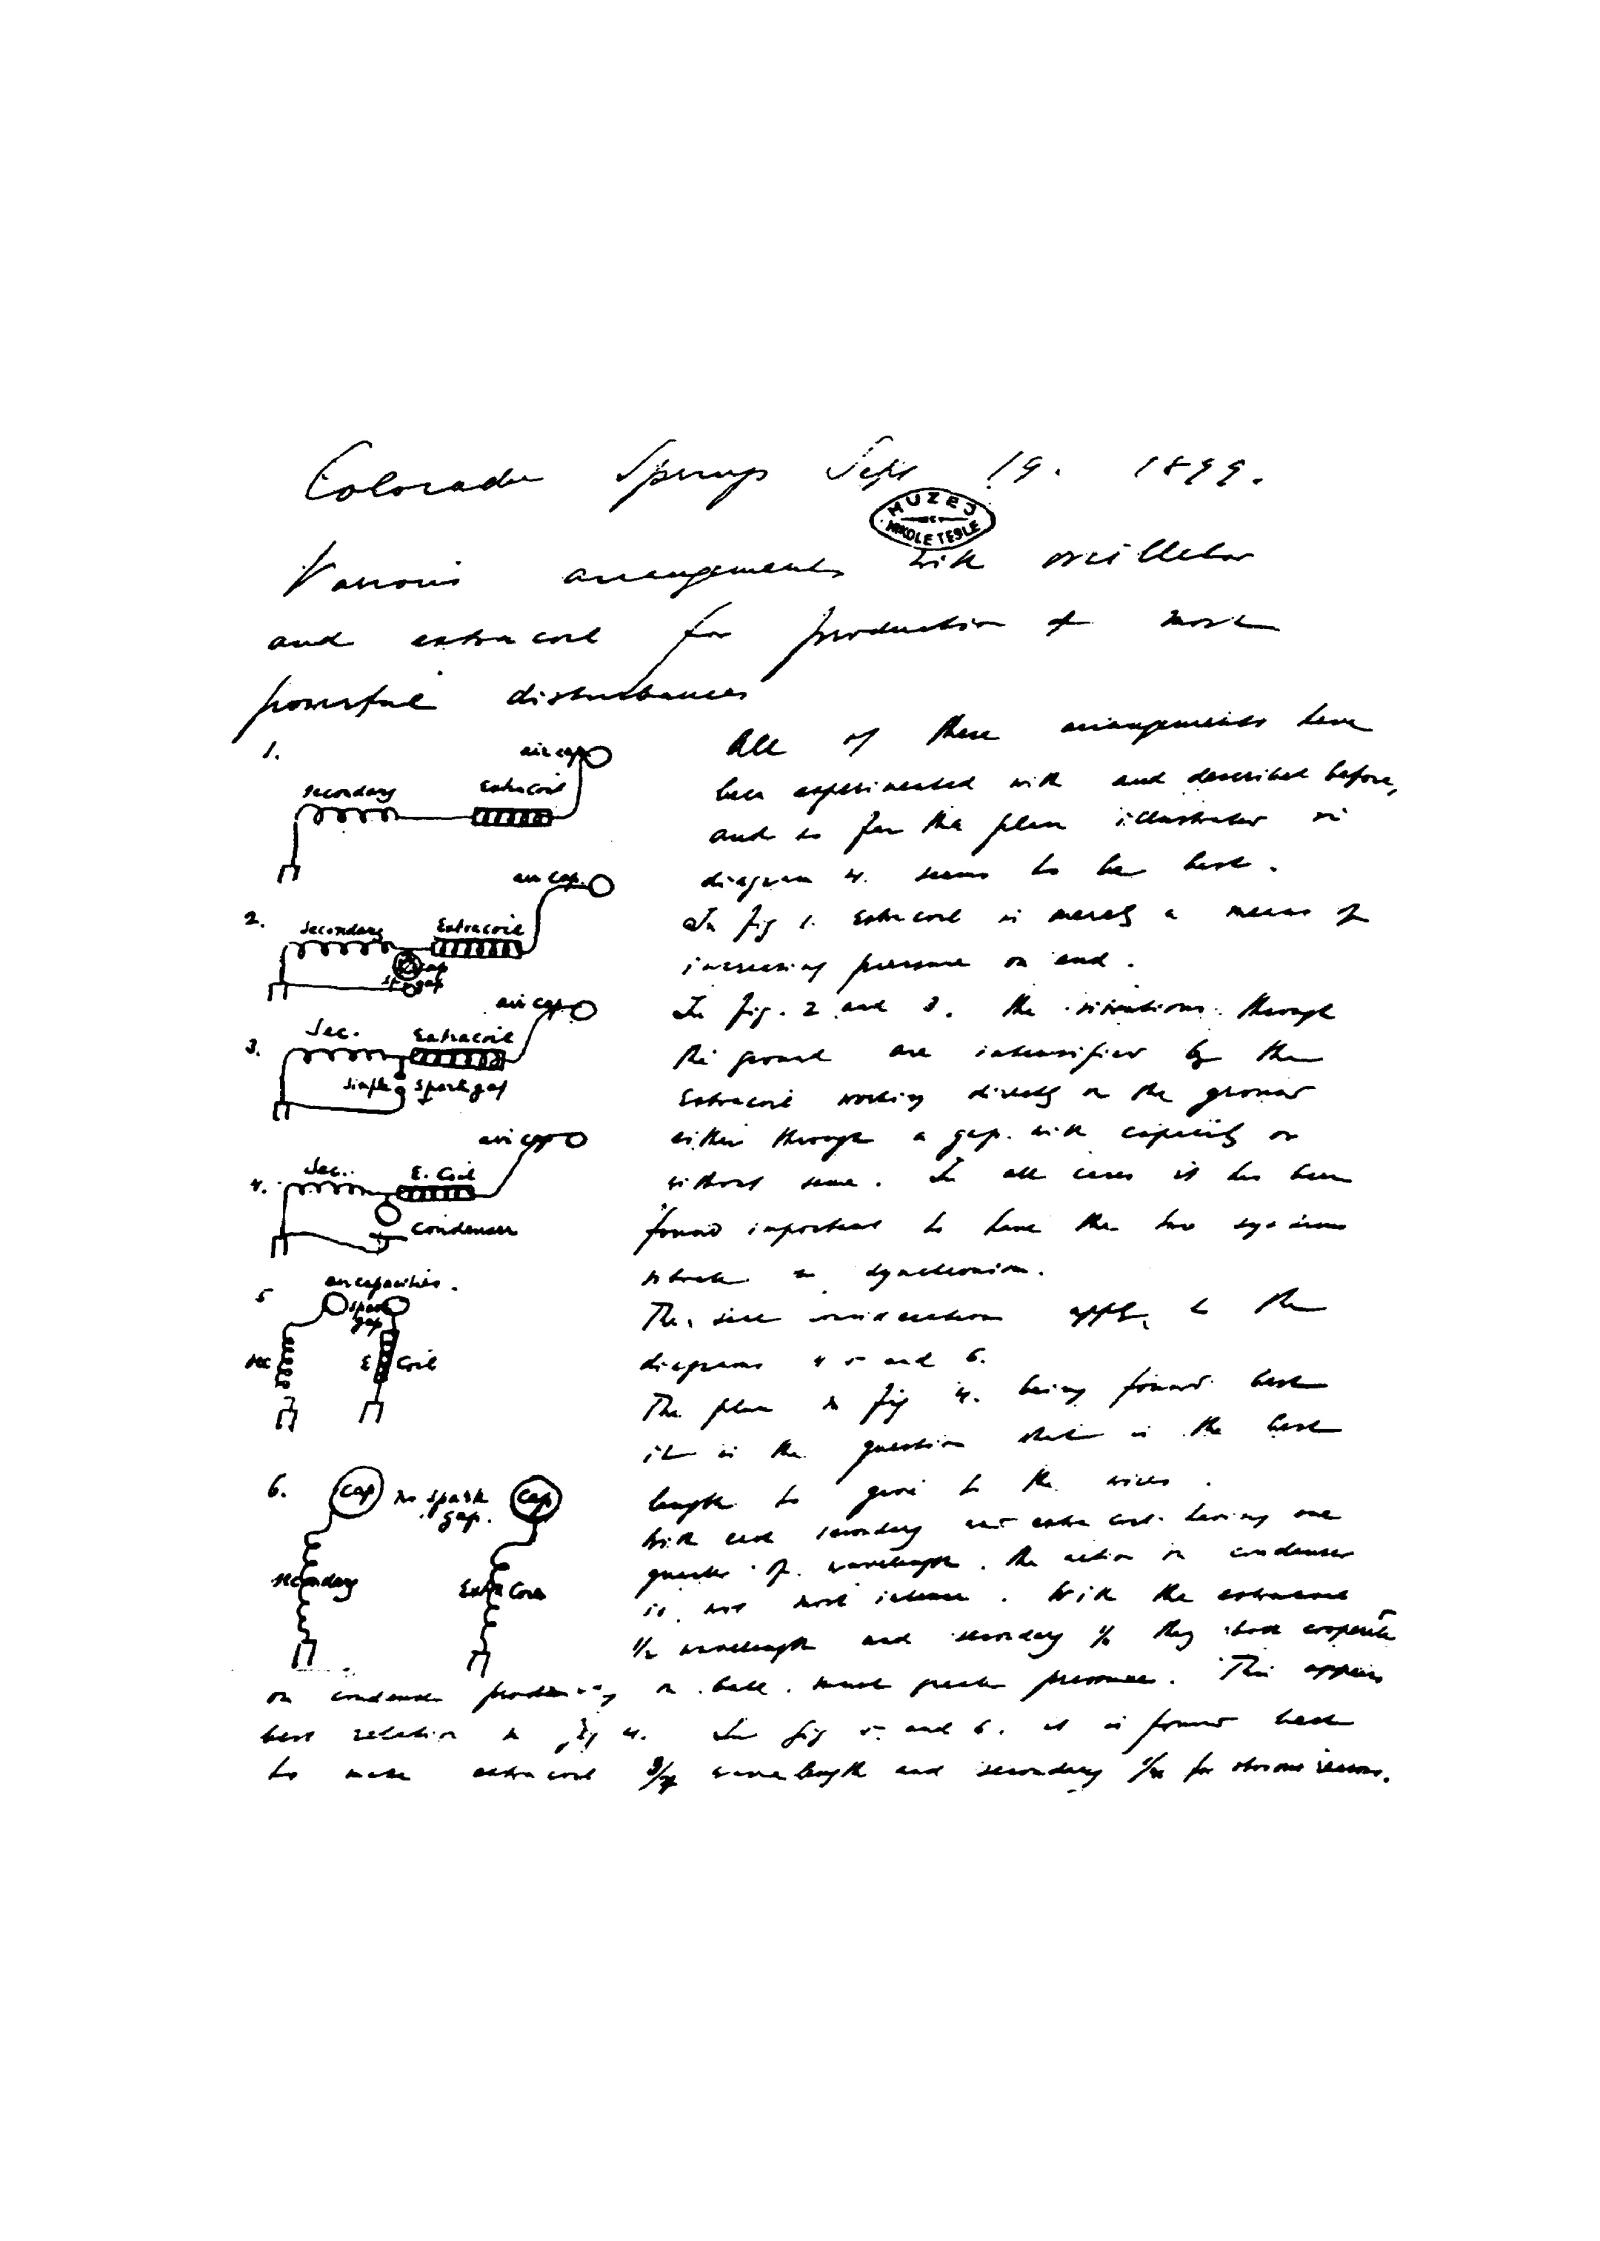 Colorado Springs Sept 19. 1899.
MUZEJ
NIKOLE TESLE
Various arrangements with oscillator
and extra coil for production of most
powerful disturbances
1.
air cap
Secondary
Extra coil
2.
air cap.
Secondary
Extra coil
cap
gap
3.
air cap
Sec.
Extra coil
Simple Spark gap
4.
air cap
Sec.
E. Coil
Condenser
5
air capacities.
spark
gap
sec
E Coil
6.
cap
no spark
gap.
cap
Secondary
Extra Coil
All of these arrangements have
been experimented with and described before,
and so far the plan illustrated in
diagram 4. seems to be best.
In fig 1. Extra coil is merely a means of
increasing pressure on end.
In fig. 2 and 3. the vibrations through
the ground are intensified by the
Extra coil working directly on the ground
either through a gap with capacity or
without same. In all cases it has been
found important to have the two systems
vibrate in synchronism.
The same considerations apply to the
diagrams 4 5 and 6.
The plan in fig 4. being found best
it is the question what is the best
length to give to the wires.
With each secondary and extra coil having one
quarter of wavelength the action on condenser
is not most intense. With the extra coil
1/2 wavelength and secondary 1/4 they both cooperate
on condenser producing on ball much greater pressure. This appears
best relation in fig 4. In fig 5 and 6. it is found best
to make extra coil 3/4 wave length and secondary 1/4 for obvious reasons.